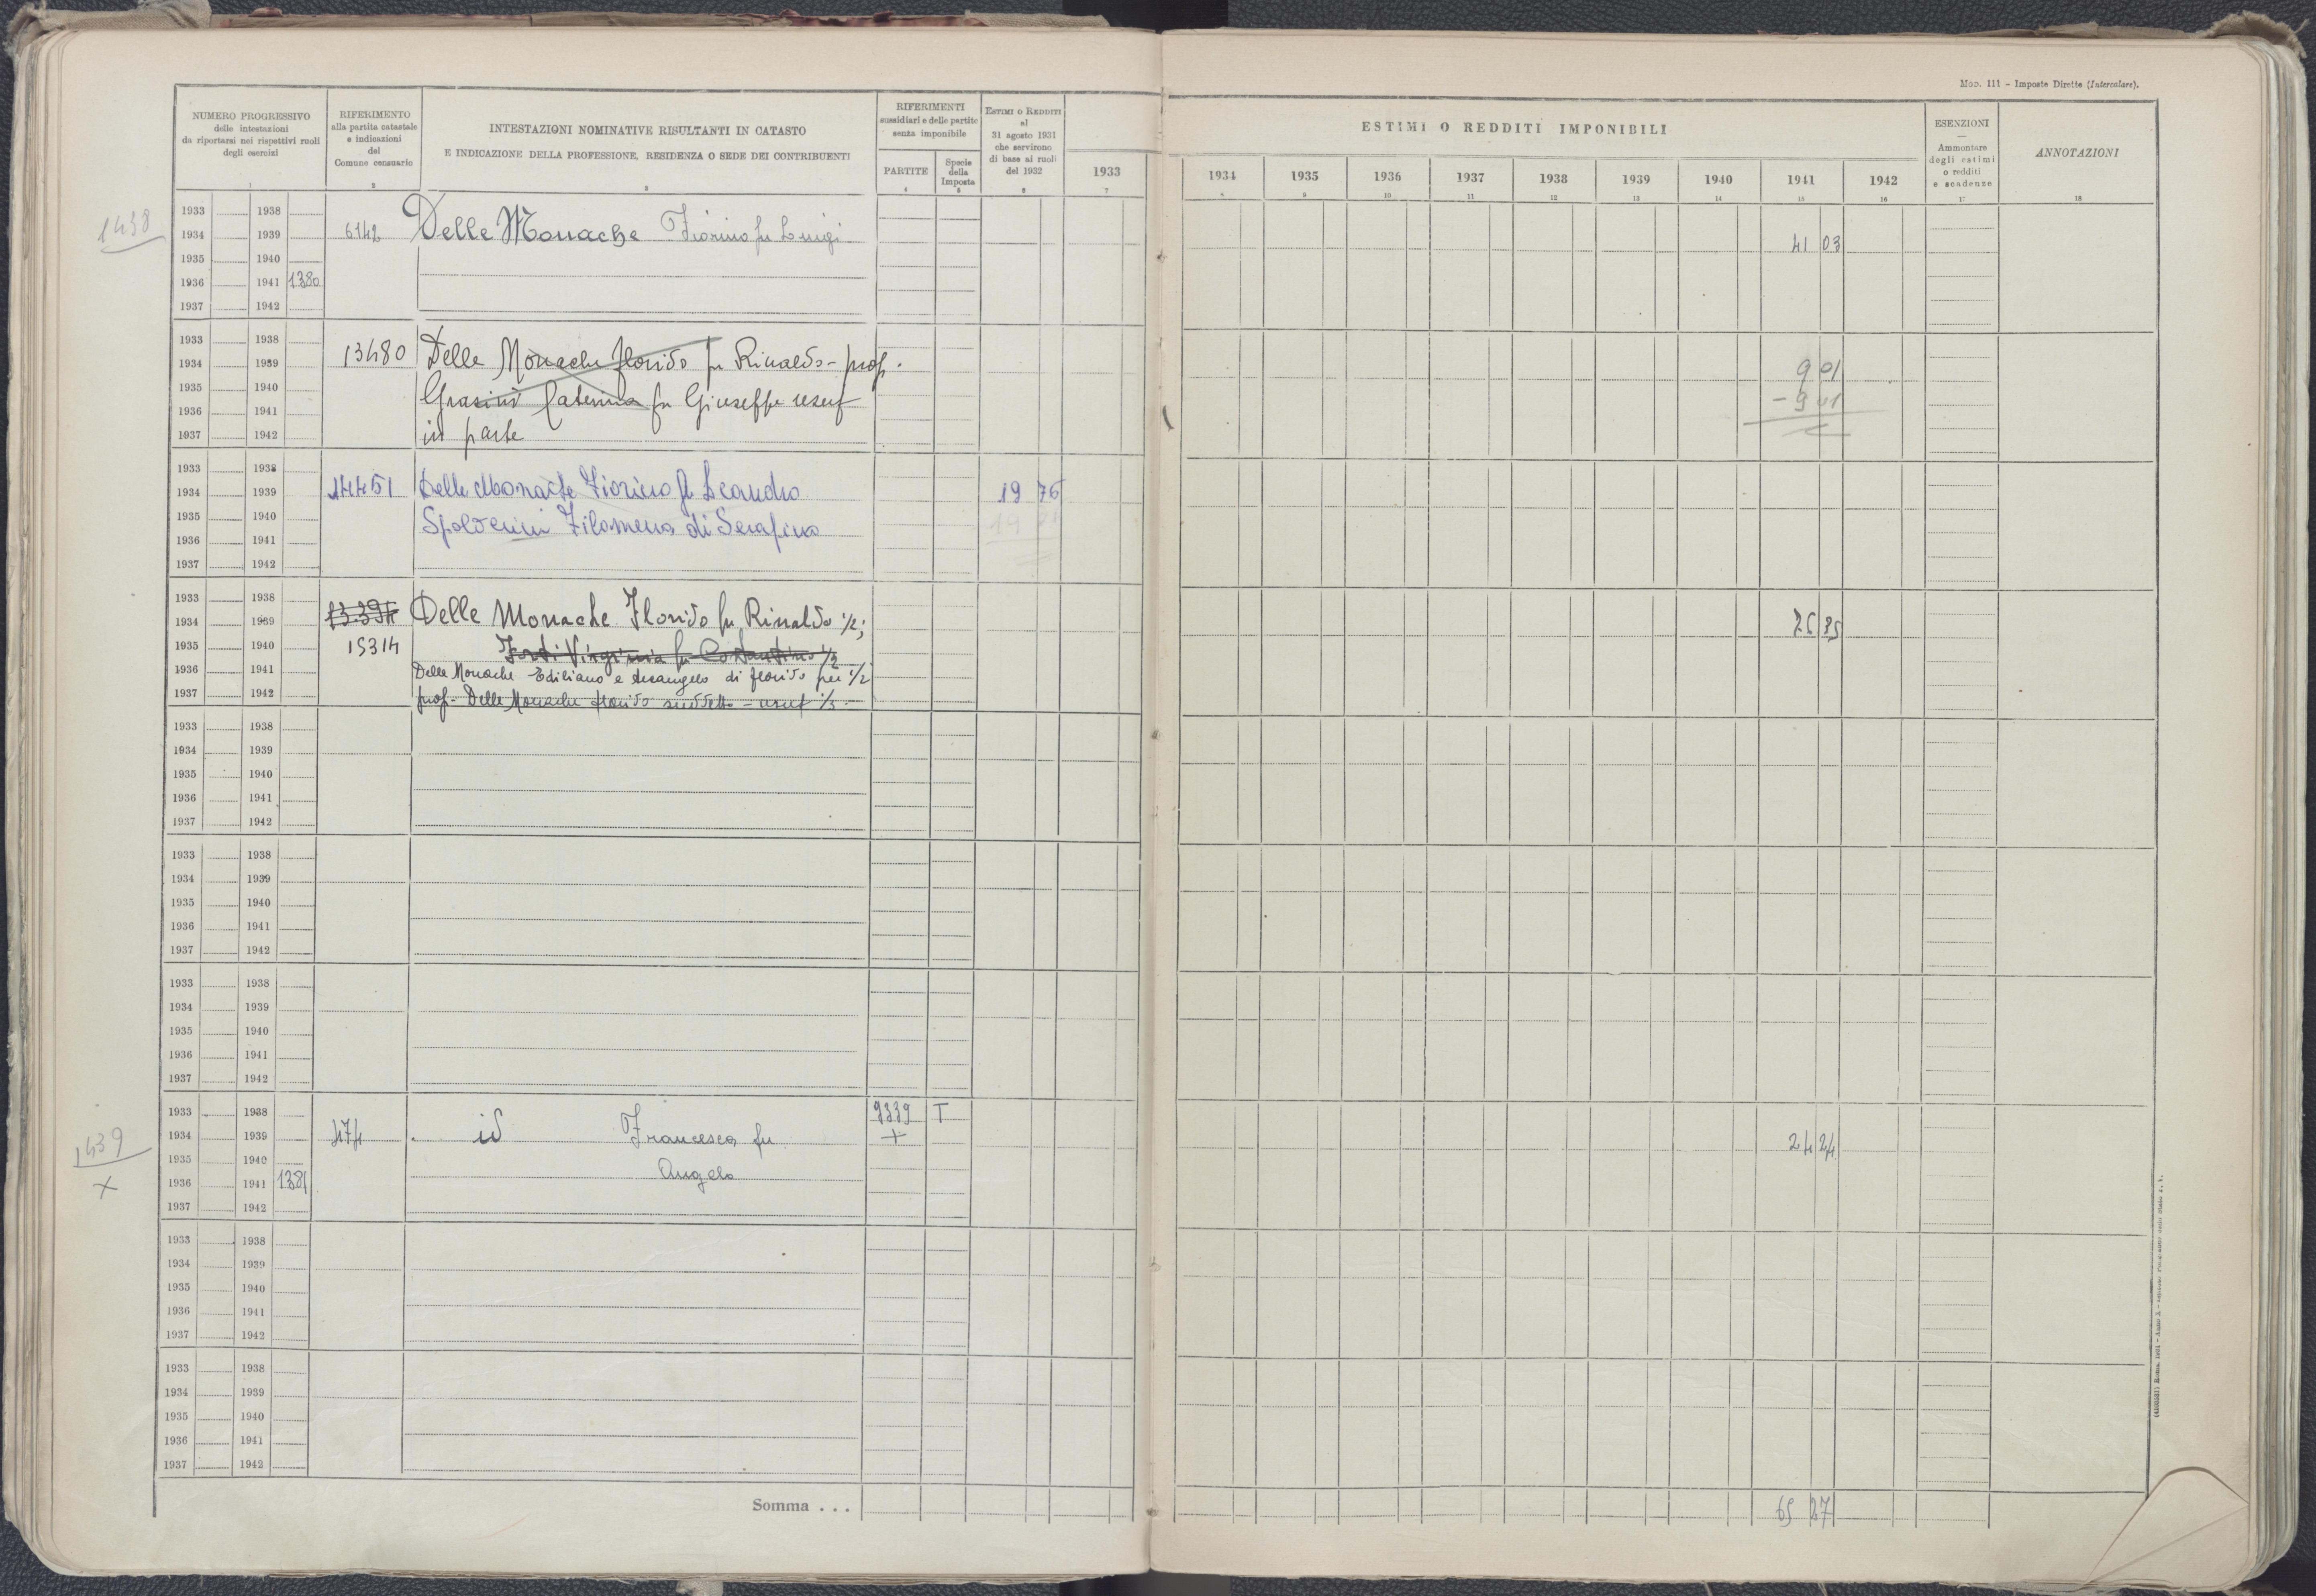 MOD. 111 - Imposte Dirette (Intercalare).
NUMERO PROGRESSIVO
delle intestazioni
da riportarsi nei rispettivi ruoli
degli esercizi
1
RIFERIMENTO
alla partita catastale
e indicazioni
del
Comune censuario
2
INTESTAZIONI NOMINATIVE RISULTANTI IN CATASTO
E INDICAZIONE DELLA PROFESSIONE, RESIDENZA O SEDE DEI CONTRIBUENTI
3
RIFERIMENTI
sussidiari e delle partite
senza imponibile
PARTITE
4
Specie
della
Imposta
5
ESTIMI O REDDITI
al
31 agosto 1931
che servirono
di base ai ruoli
del 1932
6
1933
7
ESTIMI O REDDITI IMPONIBILI
1934 1935 1936 1937 1938 1939 1940 1941 1942
8 9 10 11 12 13 14 15 16
ESENZIONI
—
Ammontare
degli estimi
o redditi
e scadenze
17
ANNOTAZIONI
18
1438
1933 1938
1934 1939 6142 Delle Monache Fiorino fu Luigi 41 03
1935 1940
1936 1941 1380
1937 1942
1933 1938
1934 1939 13480 Delle Monache Florido fu Rinaldo - prop. 9 01
1935 1940
1936 1941 Caterina fu Giuseppe usuf - 9 01
1937 1942 in parte
1933 1938
1934 1939 14451 Delle Monache Fiorino fu Leandro 19 76
1935 1940 Filomena di Serafino
1936 1941
1937 1942
1933 1938
1934 1939 13394 Delle Monache Florido fu Rinaldo 1/2;
1935 1940 15314 Virginia fu Costantino 1/2
1936 1941 Delle Monache Ediliano e di Florido per 1/2
1937 1942 prop. Delle Monache Florido suddetto - usuf 1/3
1933 1938
1934 1939
1935 1940
1936 1941
1937 1942
1933 1938
1934 1939
1935 1940
1936 1941
1937 1942
1933 1938
1934 1939
1935 1940
1936 1941
1937 1942
1439
X
1933 1938 9339 T
1934 1939 474 id Francesca fu + 24 24
1935 1940 Angelo
1936 1941 1381
1937 1942
1933 1938
1934 1939
1935 1940
1936 1941
1937 1942
1933 1938
1934 1939
1935 1940
1936 1941
1937 1942
Somma . . . 65 27